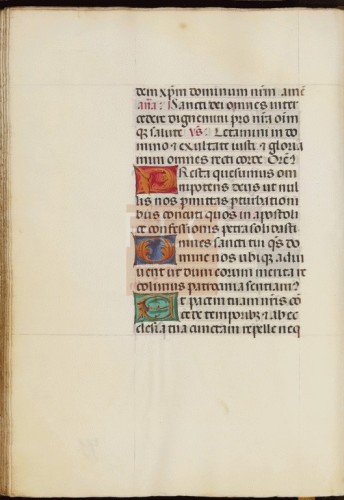 dem xp̄m dominum nr̄m amē
aña: Sancti dei omnes inter
cedere dignemini pro nr̄a oīm
q̄ salute v̄s: Letamini in do
mino ⁊ exultate iusti ⁊ gloria
mini omnes recti corde Or̄e
Presta quesumus om
nipotens deus ut nul
lis nos ꝑmittas ꝑturbationi
bus concuti quos in apostoli
ce confessionis petra solidasti
Omnes sancti tui q̄s do
mine nos ubiq̄ adiu
vent ut dum eorum merita re
colimus patrocinia sentiam᷒
Et pacem tuam nr̄is cō
cede temporib᷒ ⁊ ab ec
clesia tua cunctam repelle neq̄